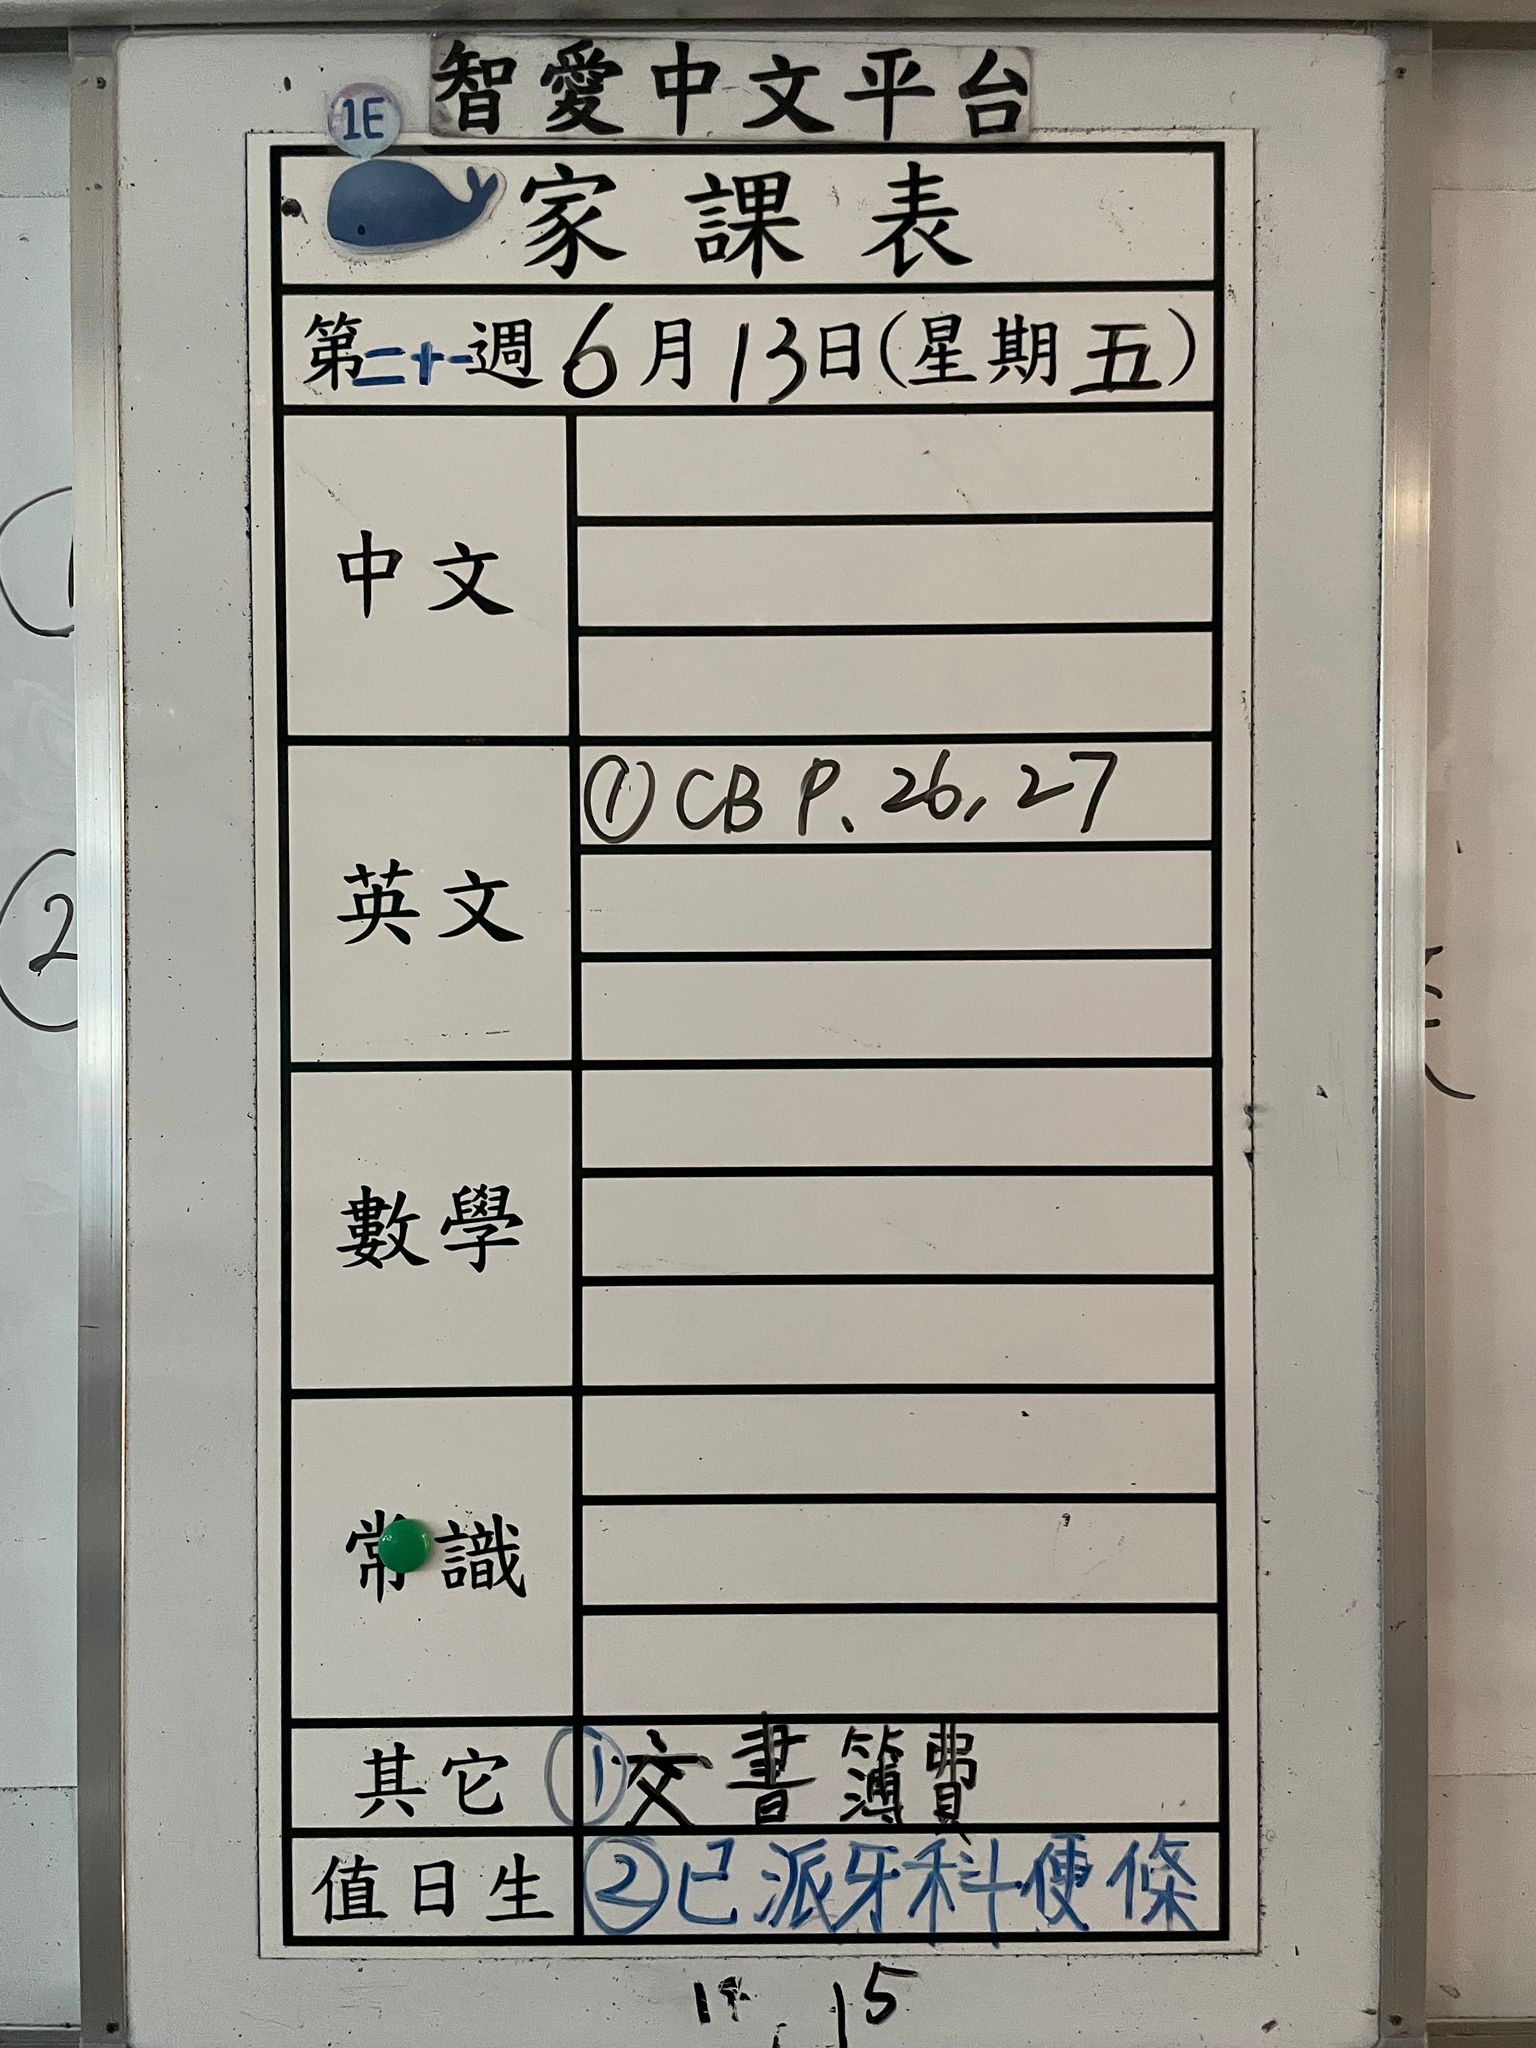 智愛中文平台
1E
家課表
第二十一週6月13日(星期五)
中文
英文
①CB P.26,27
數學
常識
其它
①交書簿費
值日生
②已派牙科便條
15
2